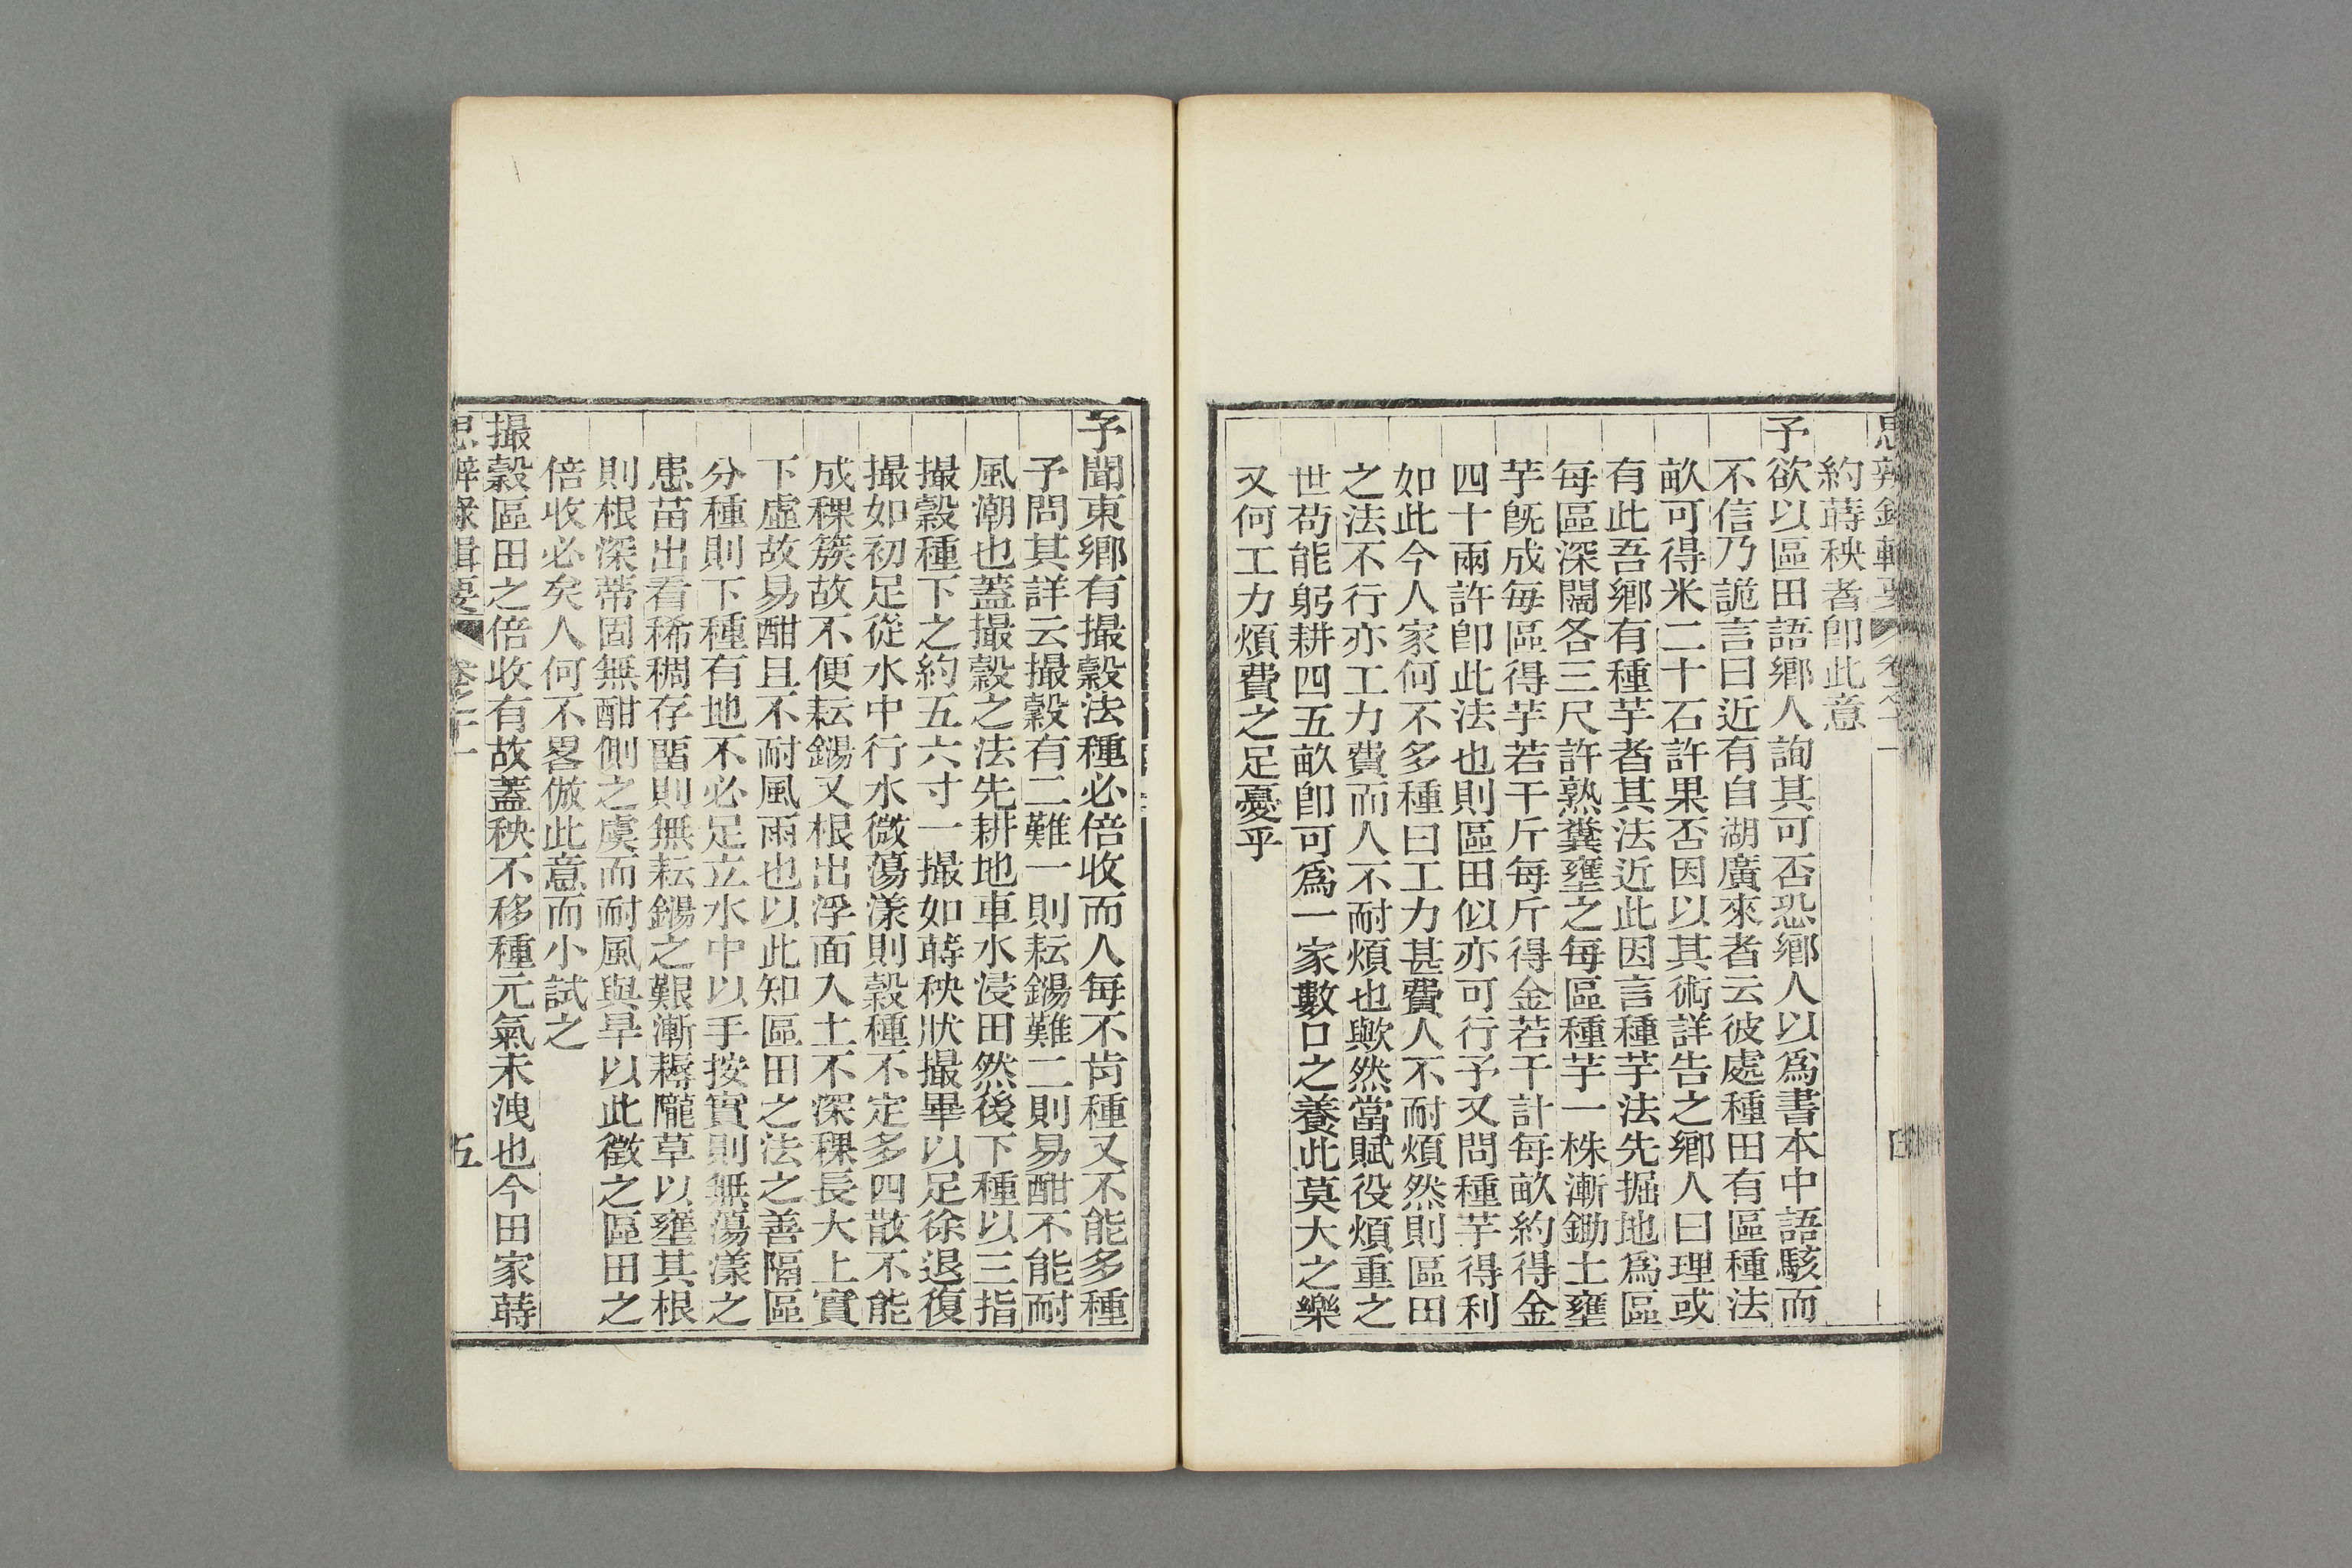 思辨錄輯要 卷之十一 四
約蒔秧者卽此意
予欲以區田語鄉人詢其可否恐鄉人以爲書本中語駭而
不信乃詭言曰近有自湖廣來者云彼處種田有區種法
畝可得米二十石許果否因以其術詳告之鄉人曰理或
有此吾鄉有種芋者其法近此因言種芋法先掘地爲區
每區深闊各三尺許熟糞壅之每區種芋一株漸鋤土壅
芋旣成每區得芋若干斤每斤得金若干計每畝約得金
四十兩許卽此法也則區田似亦可行予又問種芋得利
如此今人家何不多種曰工力甚費人不耐煩然則區田
之法不行亦工力費而人不耐煩也歟然當賦役煩重之
世苟能躬耕四五畝卽可爲一家數口之養此莫大之樂
又何工力煩費之足憂乎
予聞東鄉有撮穀法種必倍收而人每不肯種又不能多種
予問其詳云撮穀有二難一則耘鐋難二則易酣不能耐
風潮也蓋撮穀之法先耕地車水浸田然後下種以三指
撮穀種下之約五六寸一撮如蒔秧狀撮畢以足徐退復
撮如初足從水中行水微蕩漾則穀種不定多四散不能
成稞簇故不便耘鐋又根出浮面入土不深稞長大上實
下虛故易酣且不耐風雨也以此知區田之法之善隔區
分種則下種有地不必足立水中以手按實則無蕩漾之
患苗出看稀稠存䟽則無耘鐋之艱漸耨隴草以壅其根
則根深蒂固無酣側之虞而耐風與旱以此徵之區田之
倍收必矣人何不畧倣此意而小試之
撮穀區田之倍收有故蓋秧不移種元氣未洩也今田家蒔
思辨錄輯要 卷之十一 五